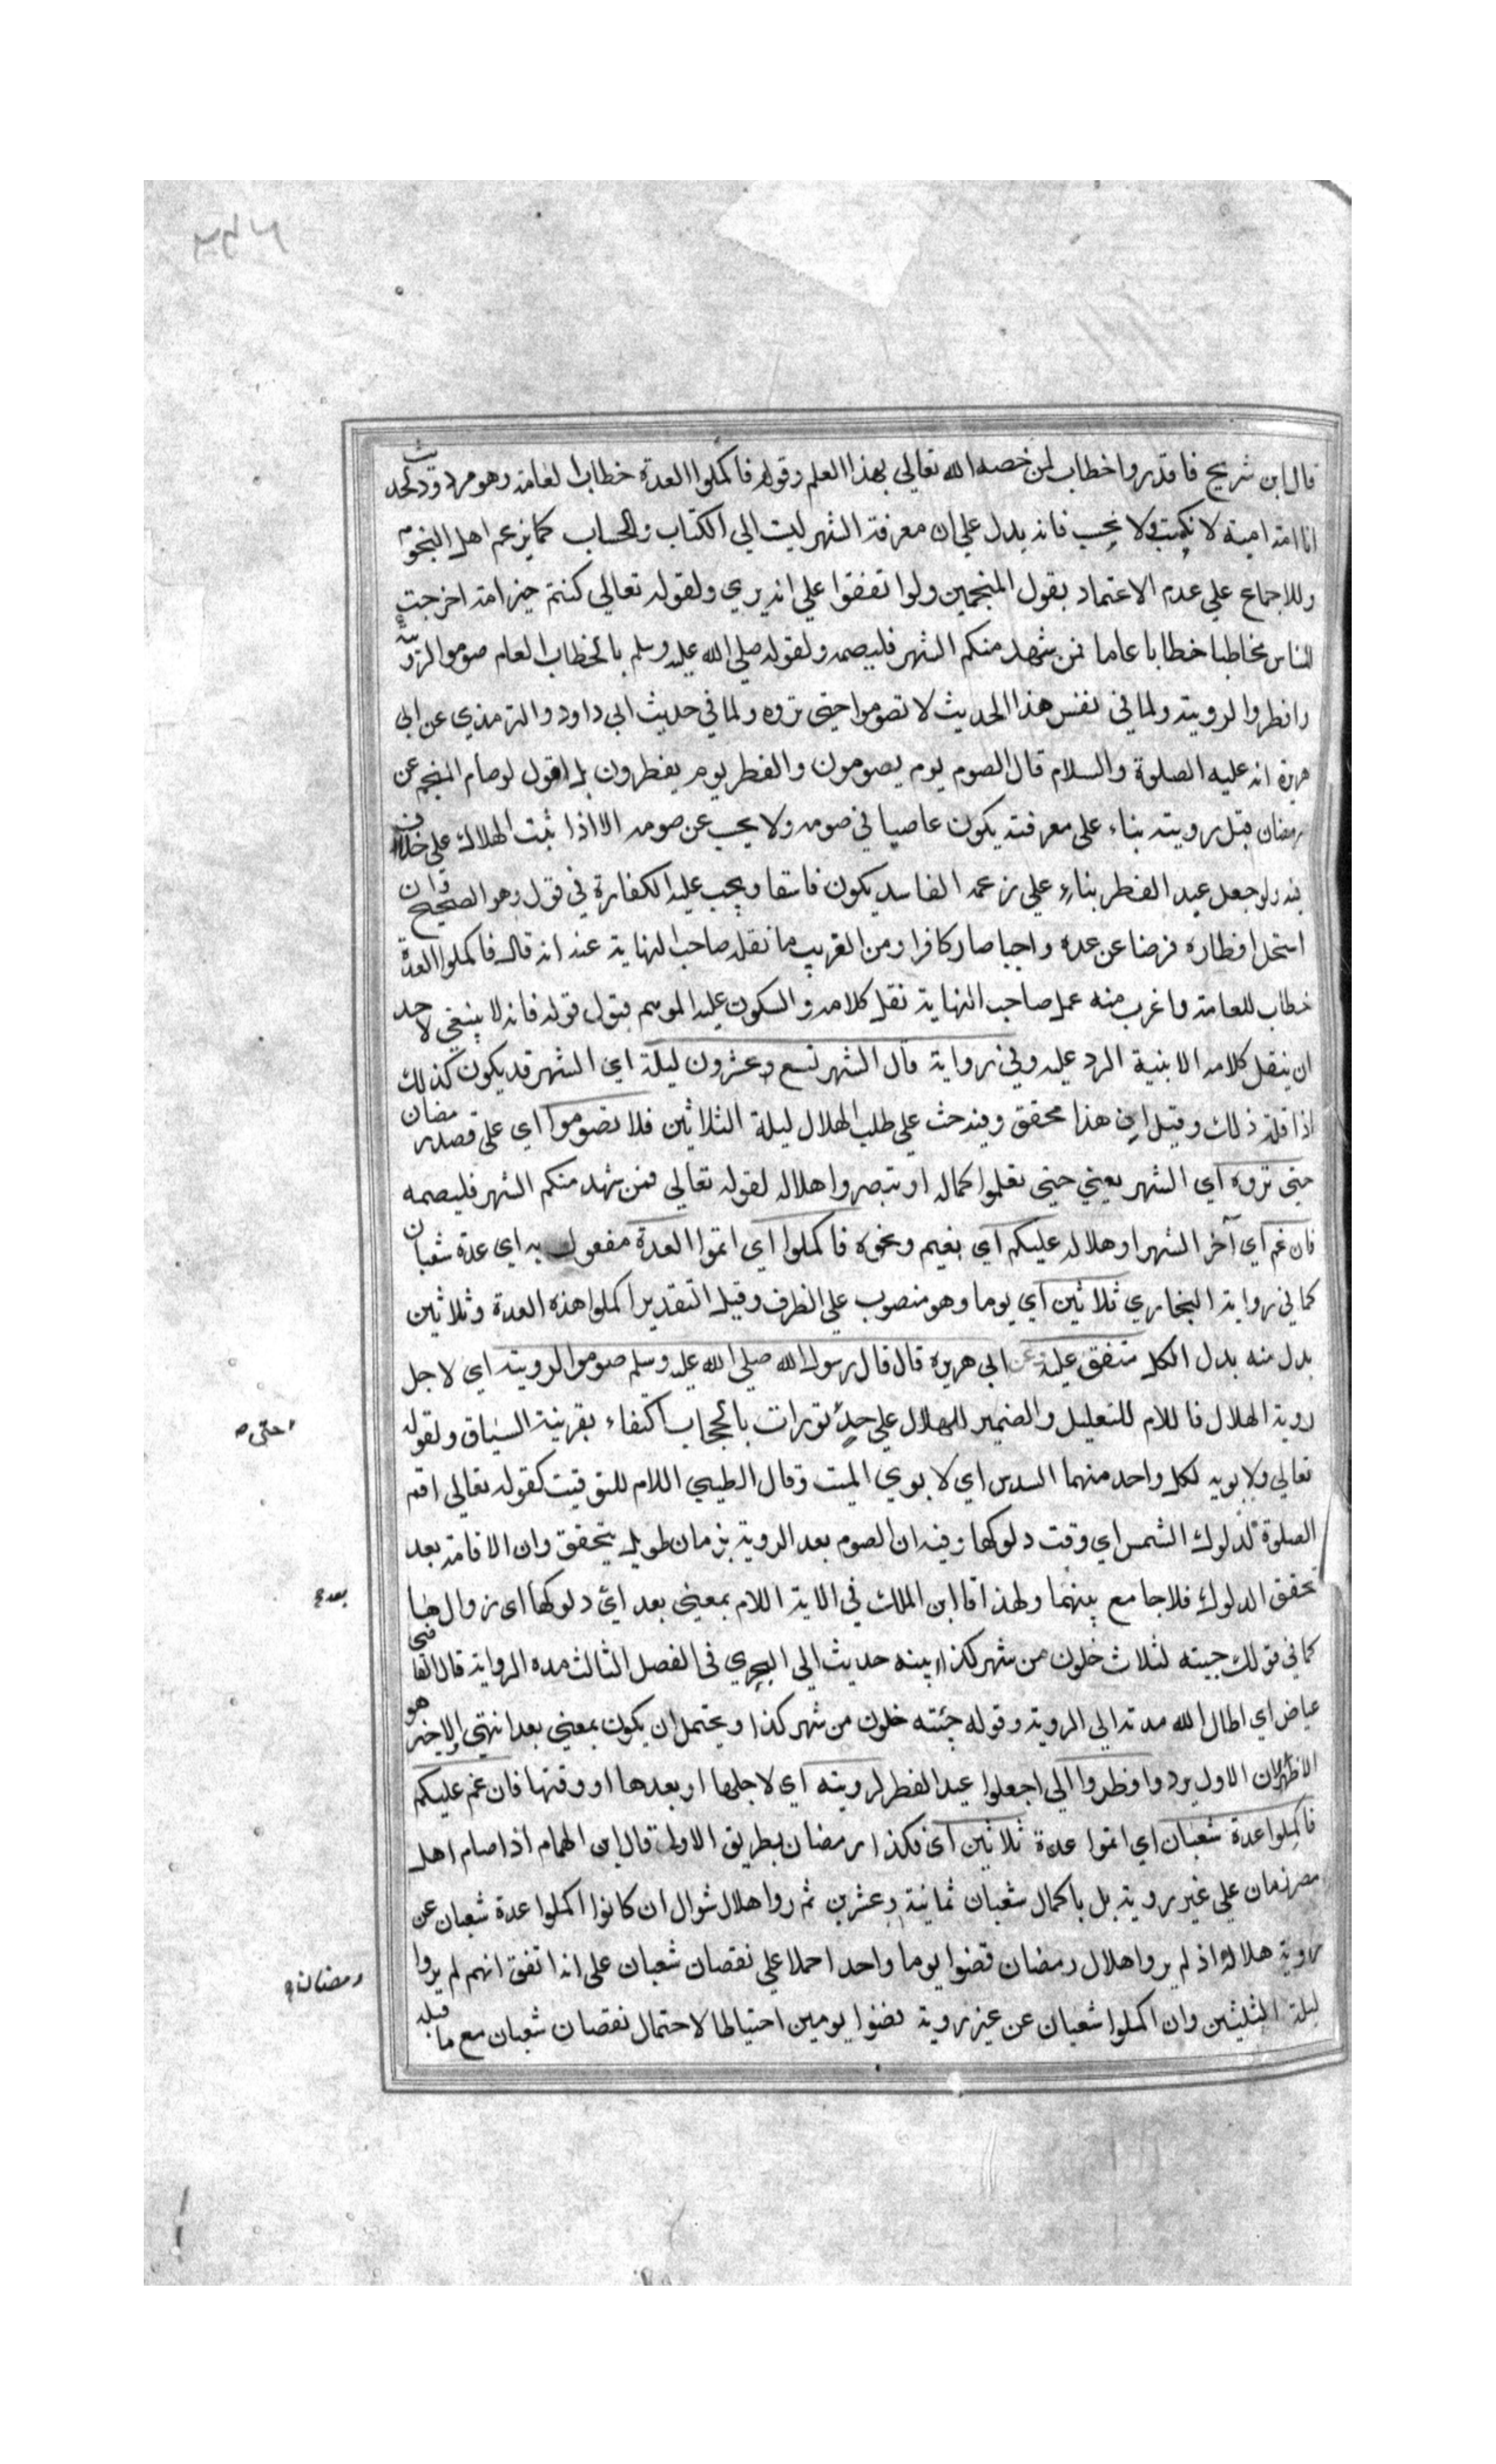 قال ابن شريح فاقدروا خطاب لمن خصه الله تعالي بهذا العلم وقوله فاكملوا العدة خطاب لعامة وهو مردود لحديث
انا امة امية لا نكتب ولا نحسب فانه يدل علي ان معرفة الشهر ليت الي الكتاب والحساب كما يزعم اهل النجوم
وللاجماع علي عدم الاعتماد بقول المنجمين ولو اتفقوا علي انه يري ولقوله تعالي كنتم خير امة اخرجت
للناس مخاطبا خطابا عاما فمن شهد منكم الشهر فليصمه ولقوله صلي الله عليه وسلم بالخطاب العام صوموا لرؤيته
وافطروا لرويته ولما في نفس هذا الحديث لا تصوموا حتي تروه ولما في حديث ابي داود والترمذي عن ابي
هريرة انه عليه الصلوة والسلام قال الصوم يوم يصومون والفطر يوم يفطرون بل اقول لو صام المنجم عن
رمضان قبل رويته بناء على معرفته يكون عاصيا في صومه ولا يحسب عن صومه الا اذا ثبت الهلال علي خلاف
فيه ولو جعل عيد الفطر بناء علي زعمه الفاسد يكون فاسقا ويجب عليه الكفارة في قول وهو الصحيح وان
استحل افطاره فرضا عن عده واجبا صار كافرا ومن الغريب ما نقله صاحب النهاية عنه انه قال فاكملوا العدة
خطاب للعامة واغرب منه عمل صاحب النهاية نقل كلامه والسكون عليه الموسم قبول قوله فانه لا ينبغي لاحد
ان ينقل كلامه الا بنية الرد عليه وفي رواية قال الشهر تسع وعشرون ليلة اي الشهر قد يكون كذلك
اذا قلة ذلك وقيل اي هذا محقق وفيه حث علي طلب الهلال ليلة الثلاثين فلا تصوموا اي على قصد رمضان
حتى تروه اي الشهر يعني حتي تعلموا كماله او تبصروا هلاله لقوله تعالي فمن شهد منكم الشهر فليصمه
فان غم اي آخر الشهر او هلاله عليكم اي بغيم ونحوه فاكملوا اي اتموا العدة مفعول به اي عدة شعبان
كما في رواية البخاري ثلاثين اي يوما وهو منصوب علي الظرف وقيل التقدير اكملوا هذه العدة وثلاثين
بدل منه بدل الكل متفق عليه عن ابي هريرة قال قال رسول الله صلي الله عليه وسلم صوموا لرويته اي لاجل
روية الهلال فاللام للتعليل والضمير للهلال علي حد توارت بالحجاب اكتفاء بقرينة السياق ولقوله
حتى
تعالي ولابويه لكل واحد منهما السدس اي لابوي الميت وقال الطيبي اللام للتوقيت كقوله تعالي اقم
الصلوة لدلوك الشمس اي وقت دلوكها وفيه ان الصوم بعد الروية بزمان طويل يتحقق وان الاقامة بعد
تحقق الدلوك فلا جامع بينهما ولهذا قا ابن الملك في الاية اللام بمعني بعد اي دلوكها اي زوالها
بعد
كما في قولك جيته لثلاث خلون من شهر كذا بينه حديث ابي البحري في الفصل الثالث مده الرواية قال القاضي
عياض اي اطال الله مدته الي الروية وقوله جئته خلون من شهر كذا ويحتمل ان يكون بمعني بعد انتهي الاخير هو
الاظهر لان الاول يرد وافطروا الي اجعلوا عيد الفطر لرويته اي لاجلها او بعدها او وقتها فان غم عليكم
فاكملوا عدة شعبان اي اتموا عدة ثلاثين اي فكذا رمضان بطريق الاولى قال ابن الهمام اذا صام اهل
مصر زمان علي غير روية بل باكمال شعبان ثمانية وعشرين ثم روا هلال شوال ان كانوا اكملوا عدة شعبان عن
روية هلاله اذ لم يروا هلال رمضان قضوا يوما واحدا حملا علي نقصان شعبان على انه اتفق انهم لم يروا
رمضان
ليلة الثلثين وان اكملوا شعبان عن غير روية قضوا يومين احتياطا لاحتمال نقصان شعبان مع ما قبله